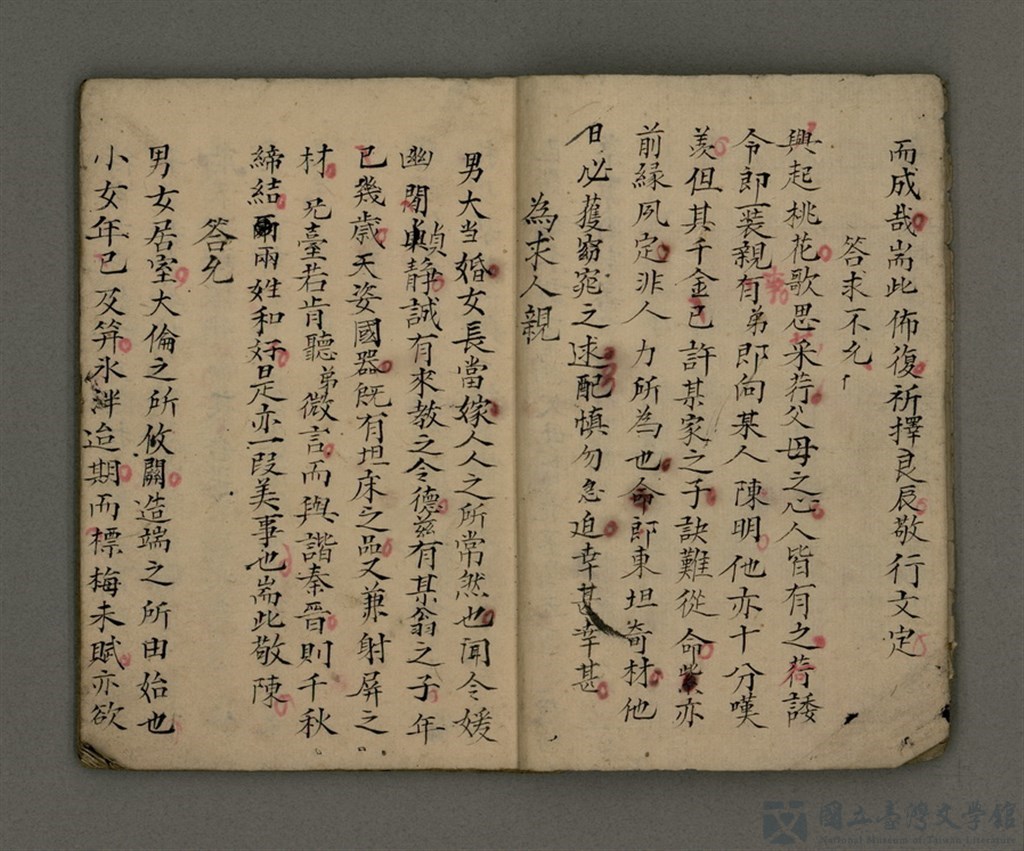 而成哉耑此佈復祈擇良辰敬行文定
答求不允
興起桃花歌思采荇父母之心人皆有之荷諉
令郎一裝親有弟即向某人陳明他亦十分嘆
羡但其千金已許某家之子訣難從命此亦
前緣夙定非人力所為也命郎東坦奇材他
日必獲窈窕之逑配慎勿急迫幸甚幸甚
為求人親
男大当婚女長當嫁人人之所常然也闻令媛
幽閒貞靜誠有來教之令德茲有某翁之子年
已幾歲天姿國器既有坦床之品又兼射屏之
材兄臺若肯聽弟微言而與諧秦晉則千秋
締結兩姓和好是亦一段美事也耑此敬陳
答允
男女居室大倫之所攸關造端之所由始也
小女年已及笄氷泮迨期而標梅未賦亦欲
國立臺灣文學館
National Museum of Taiwan Literature